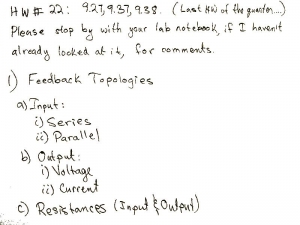 HW# 22: 9.27, 9.37, 9.38. (Last HW of the quarter....)
Please stop by with your lab notebook, if I haven't
already looked at it, for comments.
1) Feedback Topologies
a) Input:
i) Series
ii) Parallel
b) Output:
i) Voltage
ii) Current
c) Resistances (Input & Output)